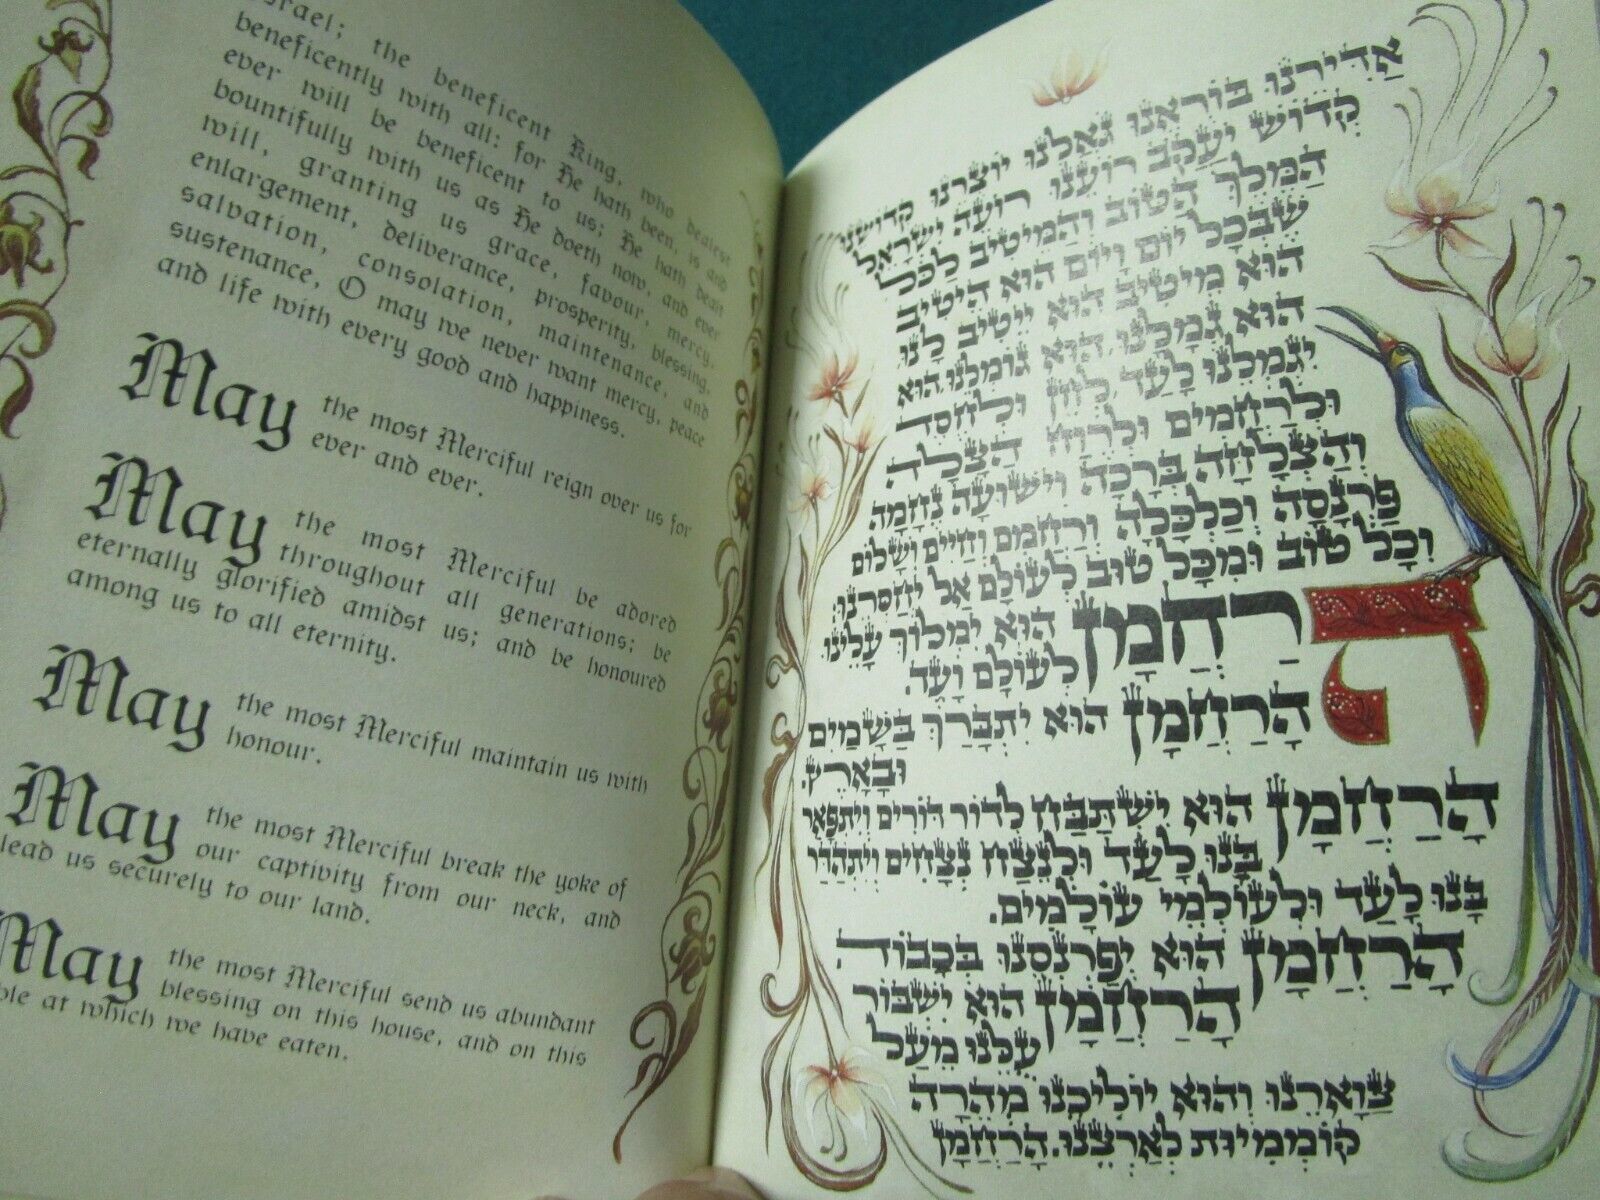 Israel; the beneficent King, who dealest
beneficently with all: for He hath been, is and
ever will be beneficent to us; He hath dealt
bountifully with us as He doeth now, and ever
will, granting us grace, favour, mercy,
enlargement, deliverance, prosperity, blessing,
salvation, consolation, maintenance, and
sustenance, O may we never want mercy, peace
and life with every good and happiness.
May the most Merciful reign over us for
ever and ever.
May the most Merciful be adored
throughout all generations; be
eternally glorified amidst us; and be honoured
among us to all eternity.
May the most Merciful maintain us with
honour.
May the most Merciful break the yoke of
our captivity from our neck, and
lead us securely to our land.
May the most Merciful send us abundant
blessing on this house, and on this
ble at which we have eaten.
אַדִּירֵנוּ בּוֹרְאֵנוּ גֹּאֲלֵנוּ יוֹצְרֵנוּ קְדוֹשֵׁנוּ
קְדוֹשׁ יַעֲקֹב רוֹעֵנוּ רוֹעֵה יִשְׂרָאֵל
הַמֶּלֶךְ הַטּוֹב וְהַמֵּיטִיב לַכֹּל
שֶׁבְּכָל יוֹם וָיוֹם הוּא הֵיטִיב
הוּא מֵיטִיב הוּא יֵיטִיב לָנוּ
הוּא גְמָלָנוּ הוּא גוֹמְלֵנוּ הוּא
יִגְמְלֵנוּ לָעַד לְחֵן וּלְחֶסֶד
וּלְרַחֲמִים וּלְרֶוַח הַצָּלָה
וְהַצְלָחָה בְּרָכָה וִישׁוּעָה נֶחָמָה
פַּרְנָסָה וְכַלְכָּלָה וְרַחֲמִים וְחַיִּים וְשָׁלוֹם
וְכָל טוֹב וּמִכָּל טוּב לְעוֹלָם אַל יְחַסְּרֵנוּ.
הָרַחֲמָן הוּא יִמְלוֹךְ עָלֵינוּ
לְעוֹלָם וָעֶד.
הָרַחֲמָן הוּא יִתְבָּרַךְ בַּשָּׁמַיִם
וּבָאָרֶץ.
הָרַחֲמָן הוּא יִשְׁתַּבַּח לְדוֹר דּוֹרִים וְיִתְפָּאֵר
בָּנוּ לָעַד וּלְנֵצַח נְצָחִים וְיִתְהַדַּר
בָּנוּ לָעַד וּלְעוֹלְמֵי עוֹלָמִים.
הָרַחֲמָן הוּא יְפַרְנְסֵנוּ בְּכָבוֹד
הָרַחֲמָן הוּא יִשְׁבּוֹר
עֻלֵּנוּ מֵעַל
צַוָּארֵנוּ וְהוּא יוֹלִיכֵנוּ מְהֵרָה
קוֹמְמִיּוּת לְאַרְצֵנוּ. הָרַחֲמָן